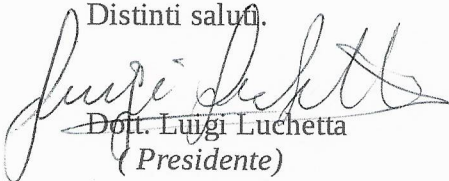 Distinti saluti.
Luigi Luchetta
Dott. Luigi Luchetta
( Presidente)